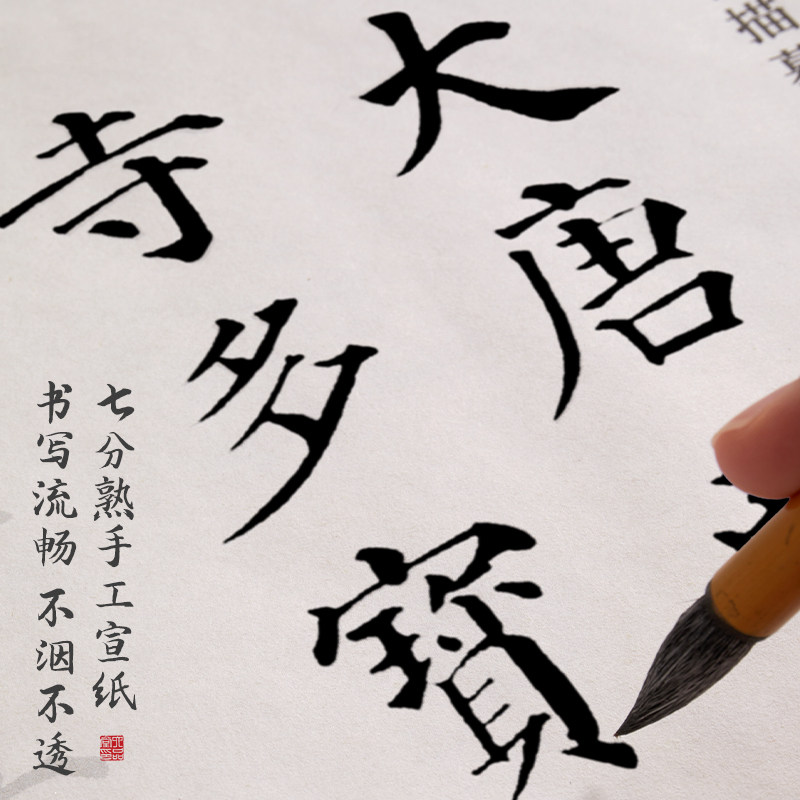 描
大唐
寺多寶
七分熟手工宣纸
书写流畅 不洇不透